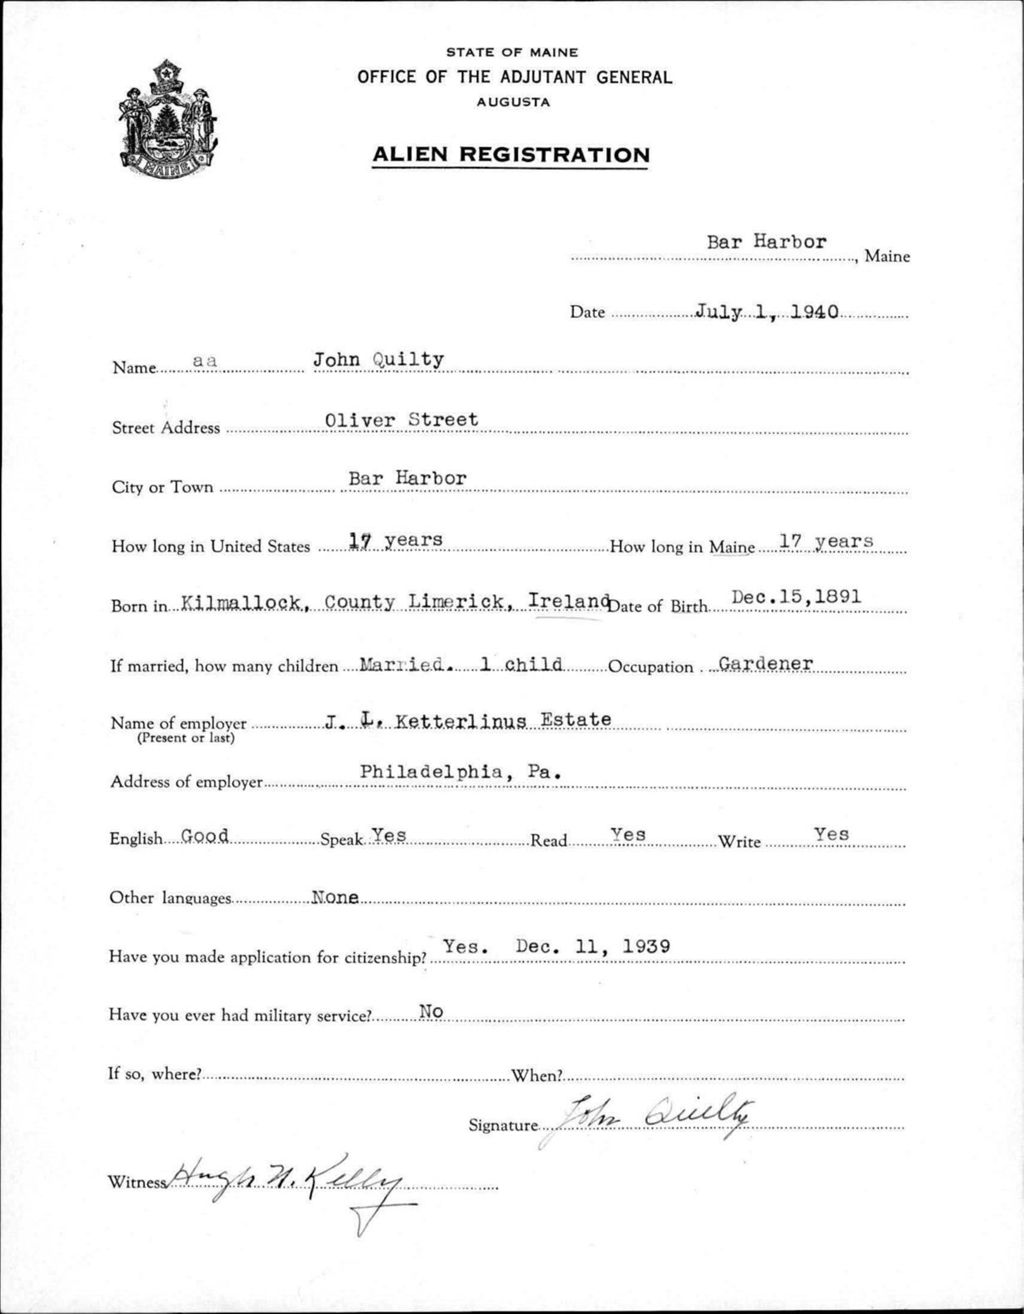 STATE OF MAINE
OFFICE OF THE ADJUTANT GENERAL
AUGUSTA
ALIEN REGISTRATION
MAINE
Bar Harbor, Maine
Date July 1, 1940
Name aa John Quilty
Street Address Oliver Street
City or Town Bar Harbor
How long in United States 17 years How long in Maine 17 years
Born in Kilmallock, County Limerick, Ireland Date of Birth Dec.15,1891
If married, how many children Married. 1 child Occupation . Gardener
Name of employer J. L. Ketterlinus Estate
(Present or last)
Address of employer Philadelphia, Pa.
English Good Speak Yes Read Yes Write Yes
Other languages None
Have you made application for citizenship? Yes. Dec. 11, 1939
Have you ever had military service? No
If so, where? When?
Signature John Quilty
Witness Hugh N. Kelly